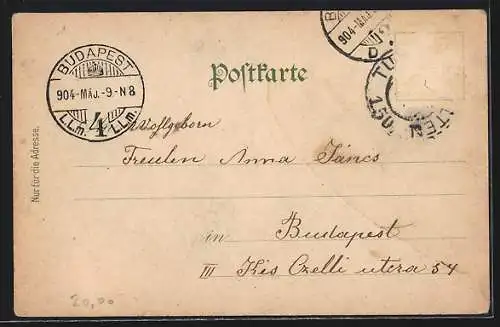 BUDAPEST
904-MÁJ.-9-N8
4
Postkarte
904-MÁJ
D
TU
150
Nur für die Adresse.
Wohlgeborn
Freulen Anna Jáncs
in Budapest
III Kis Czelli utcza 54
20,00